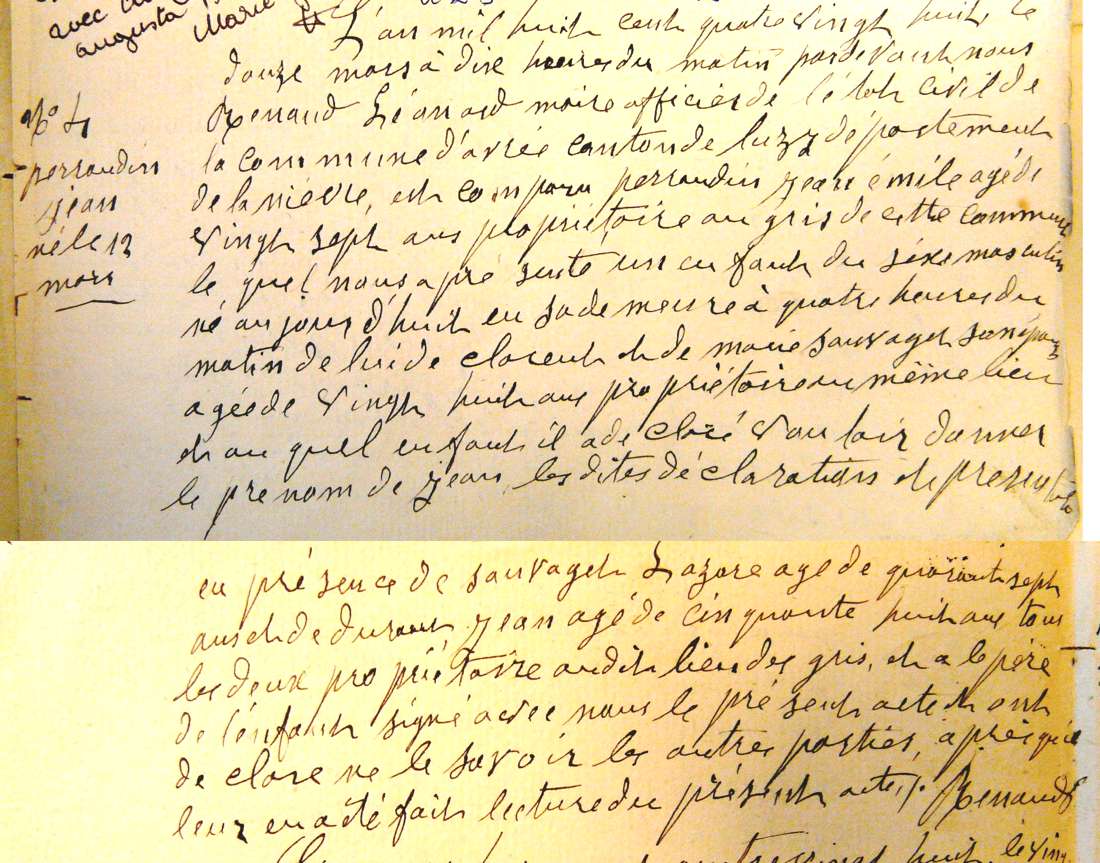 avec
augusta
Marie
L'an mil huit cent quatre vingt huit le
douze mars à dix heures du matin pardevant nous
Renaud Léonard maire officier de l'état civil de
la commune d'avrée canton de luzy département
de la nièvre, est comparu perraudin jean émile agé de
vingt sept ans propriétaire au gris de cette commune
le quel nous a pré senté un en fant du séxe masculin
né au jours d'huit en sa de meure à quatre heures du
matin de lui dé clarent et de marie sauvaget son épouze
agée de vingt huit ans pro priétaire au même lieu
et au quel en fant il a dé claré vou loir donner
le prenom de jean les dites dé clarations et presentation
No 4
perraudin
jean
né le 12
mars
en pré sence de sauvaget Lazare agé de quarante sept
ans et de durand jean agé de cinquante huit ans tous
les deux pro priétaire au dit lieu des gris, et a le père
de l'enfant signé avec nous le pré sent acte et ont
dé claré ne le savoir les autres parties, après qu'il
leur en a été fait lecture du présent acte ./. Renaud
quatre vingt huit le vingt